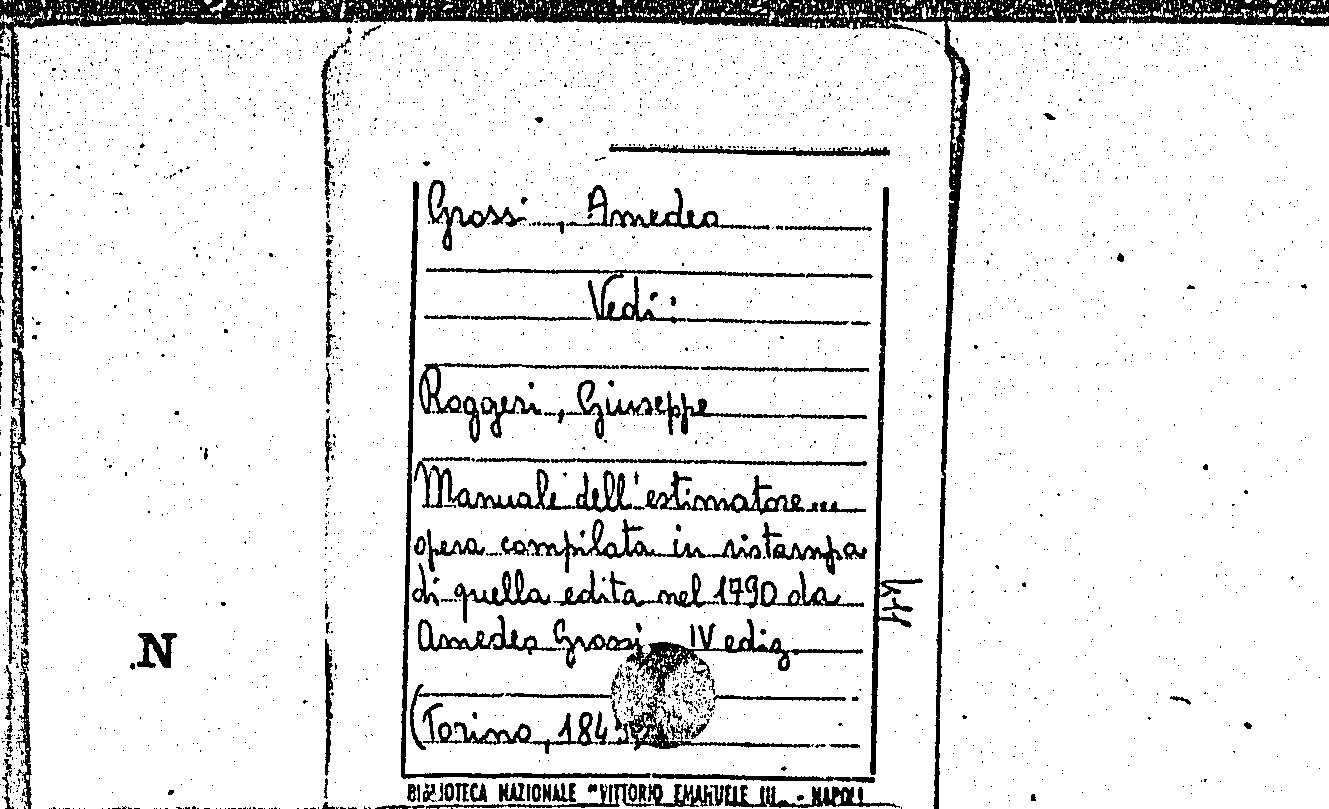 Grossi, Amedeo
Vedi:
Roggeri, Giuseppe
Manuale dell'estimatore...
opera compilata in ristampa
di quella edita nel 1790 da
Amedeo Grossi IV ediz.
(Torino, 184
N
BIBLIOTECA NAZIONALE "VITTORIO EMANUELE III" - NAPOLI